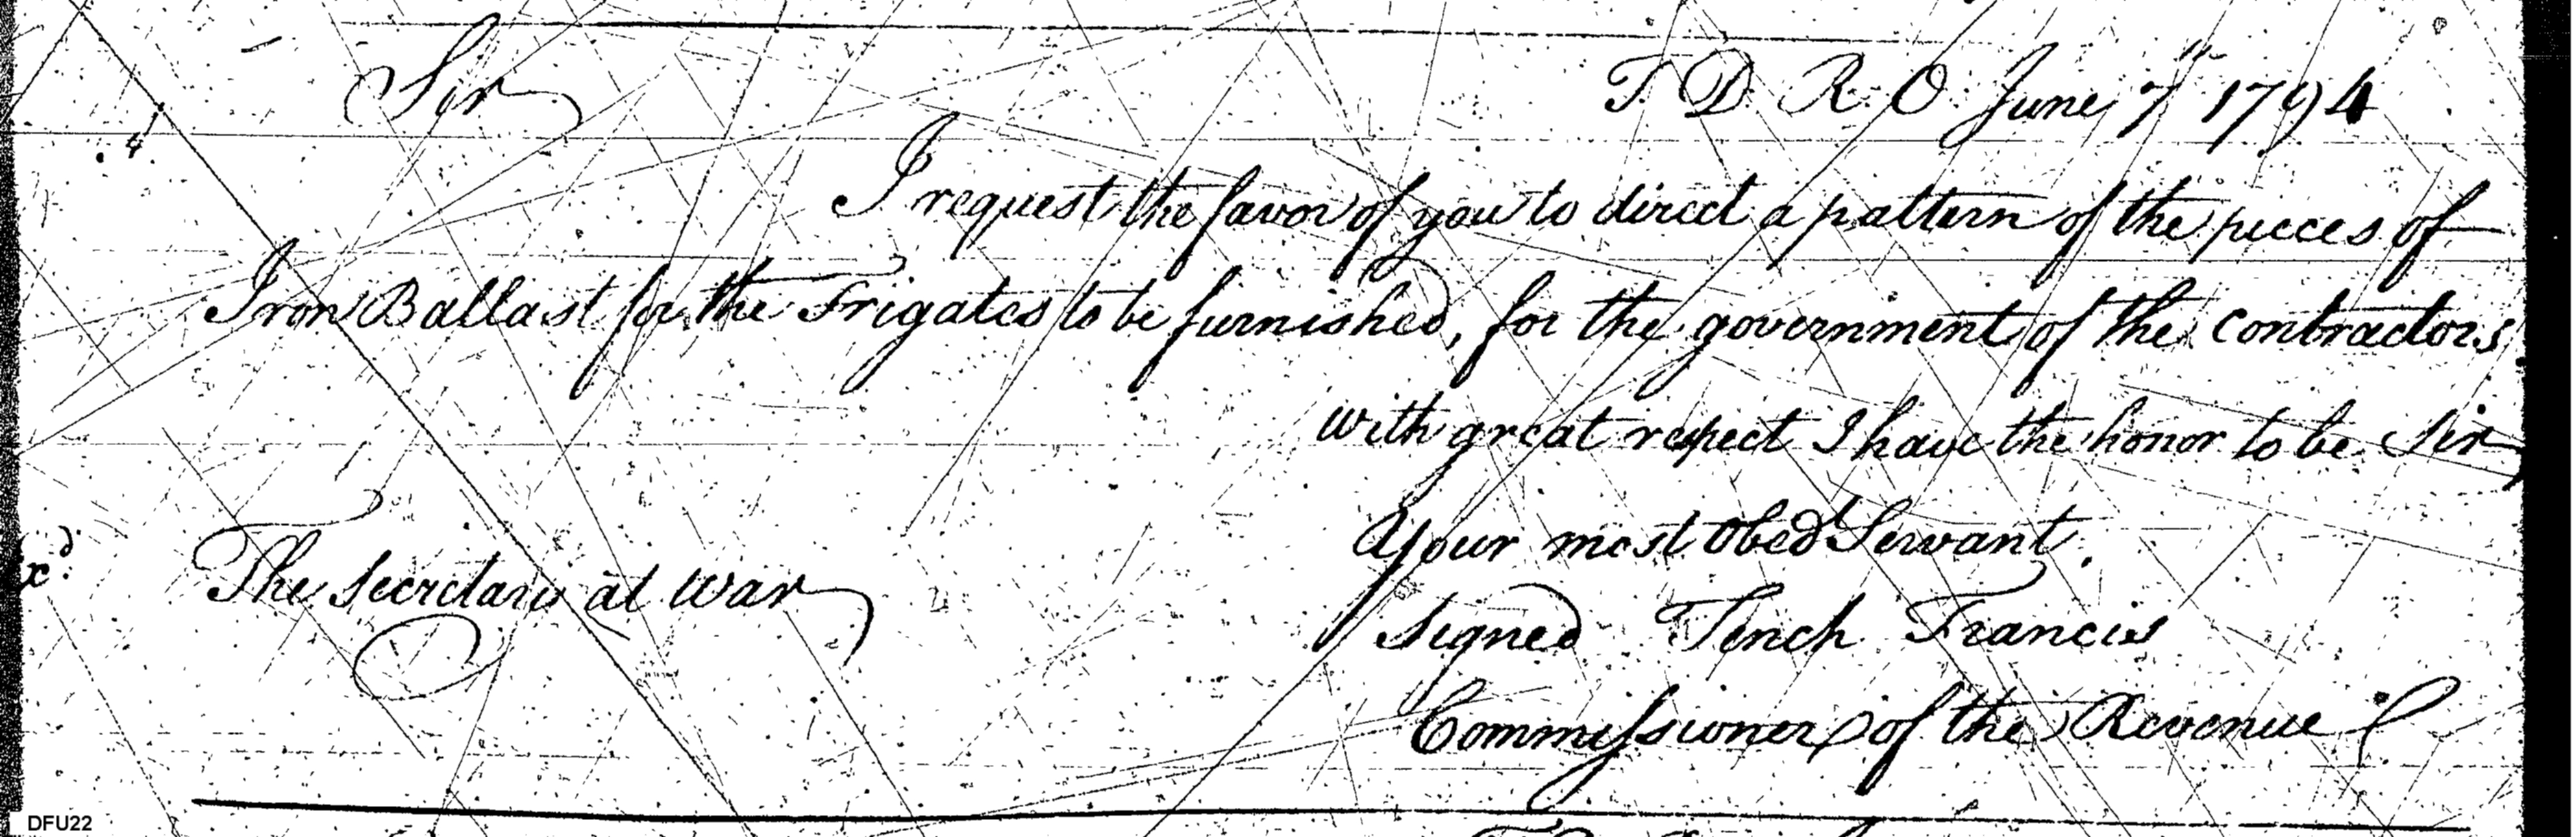 Sir
T. D. R. O. June 7th 1794
I request the favor of you to direct a pattern of the pieces of
Iron Ballast for the Frigates to be furnished, for the government of the contractors
with great respect I have the honor to be Sir
Your most Obed Servant.
Signed Tench Francis
Commissioner of the Revenue
xd.
The Secretary at War
DFU22